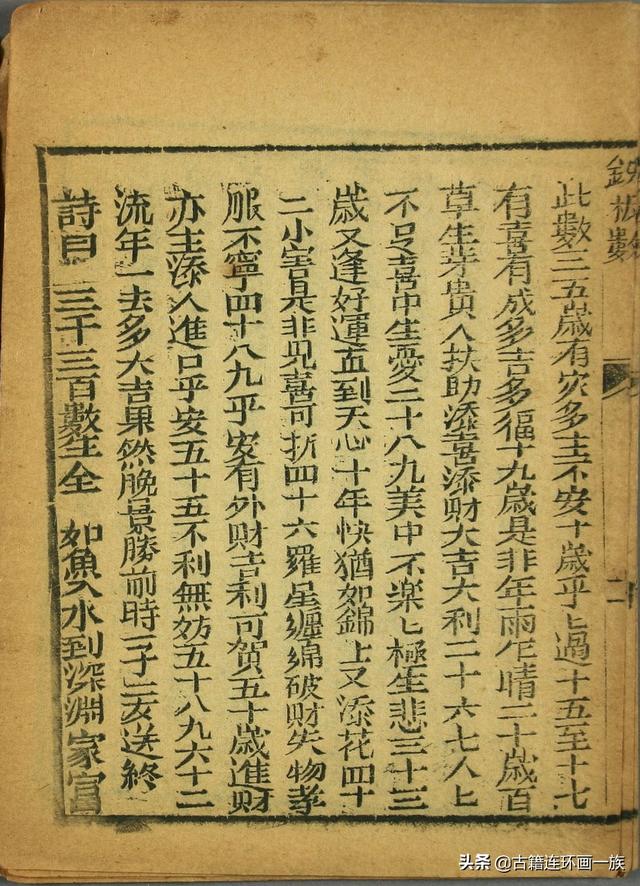 鉄板數
此數三五歲有灾多主不安十歲乎匕過十五至十七
有喜有成多吉多福十九歲是非年雨乍晴二十歲百
草生芽貴人扶助添喜添財大吉大利二十六七人上
不足喜中生憂二十八九美中不楽匕極生悲三十三
歲又逢好運直到天心十年快猶如錦上又添花四十
二小害是非見喜可折四十六羅星纏綿破財失物孝
服不寧四十八九乎安有外財吉利可賀五十歲進財
亦主添人進口乎安五十五不利無妨五十八九六十二
流年一去多大吉果然晚景勝前時一子亥送終
詩曰 三千三百數生全 如魚入水到深淵家官
头条 @古籍连环画一族